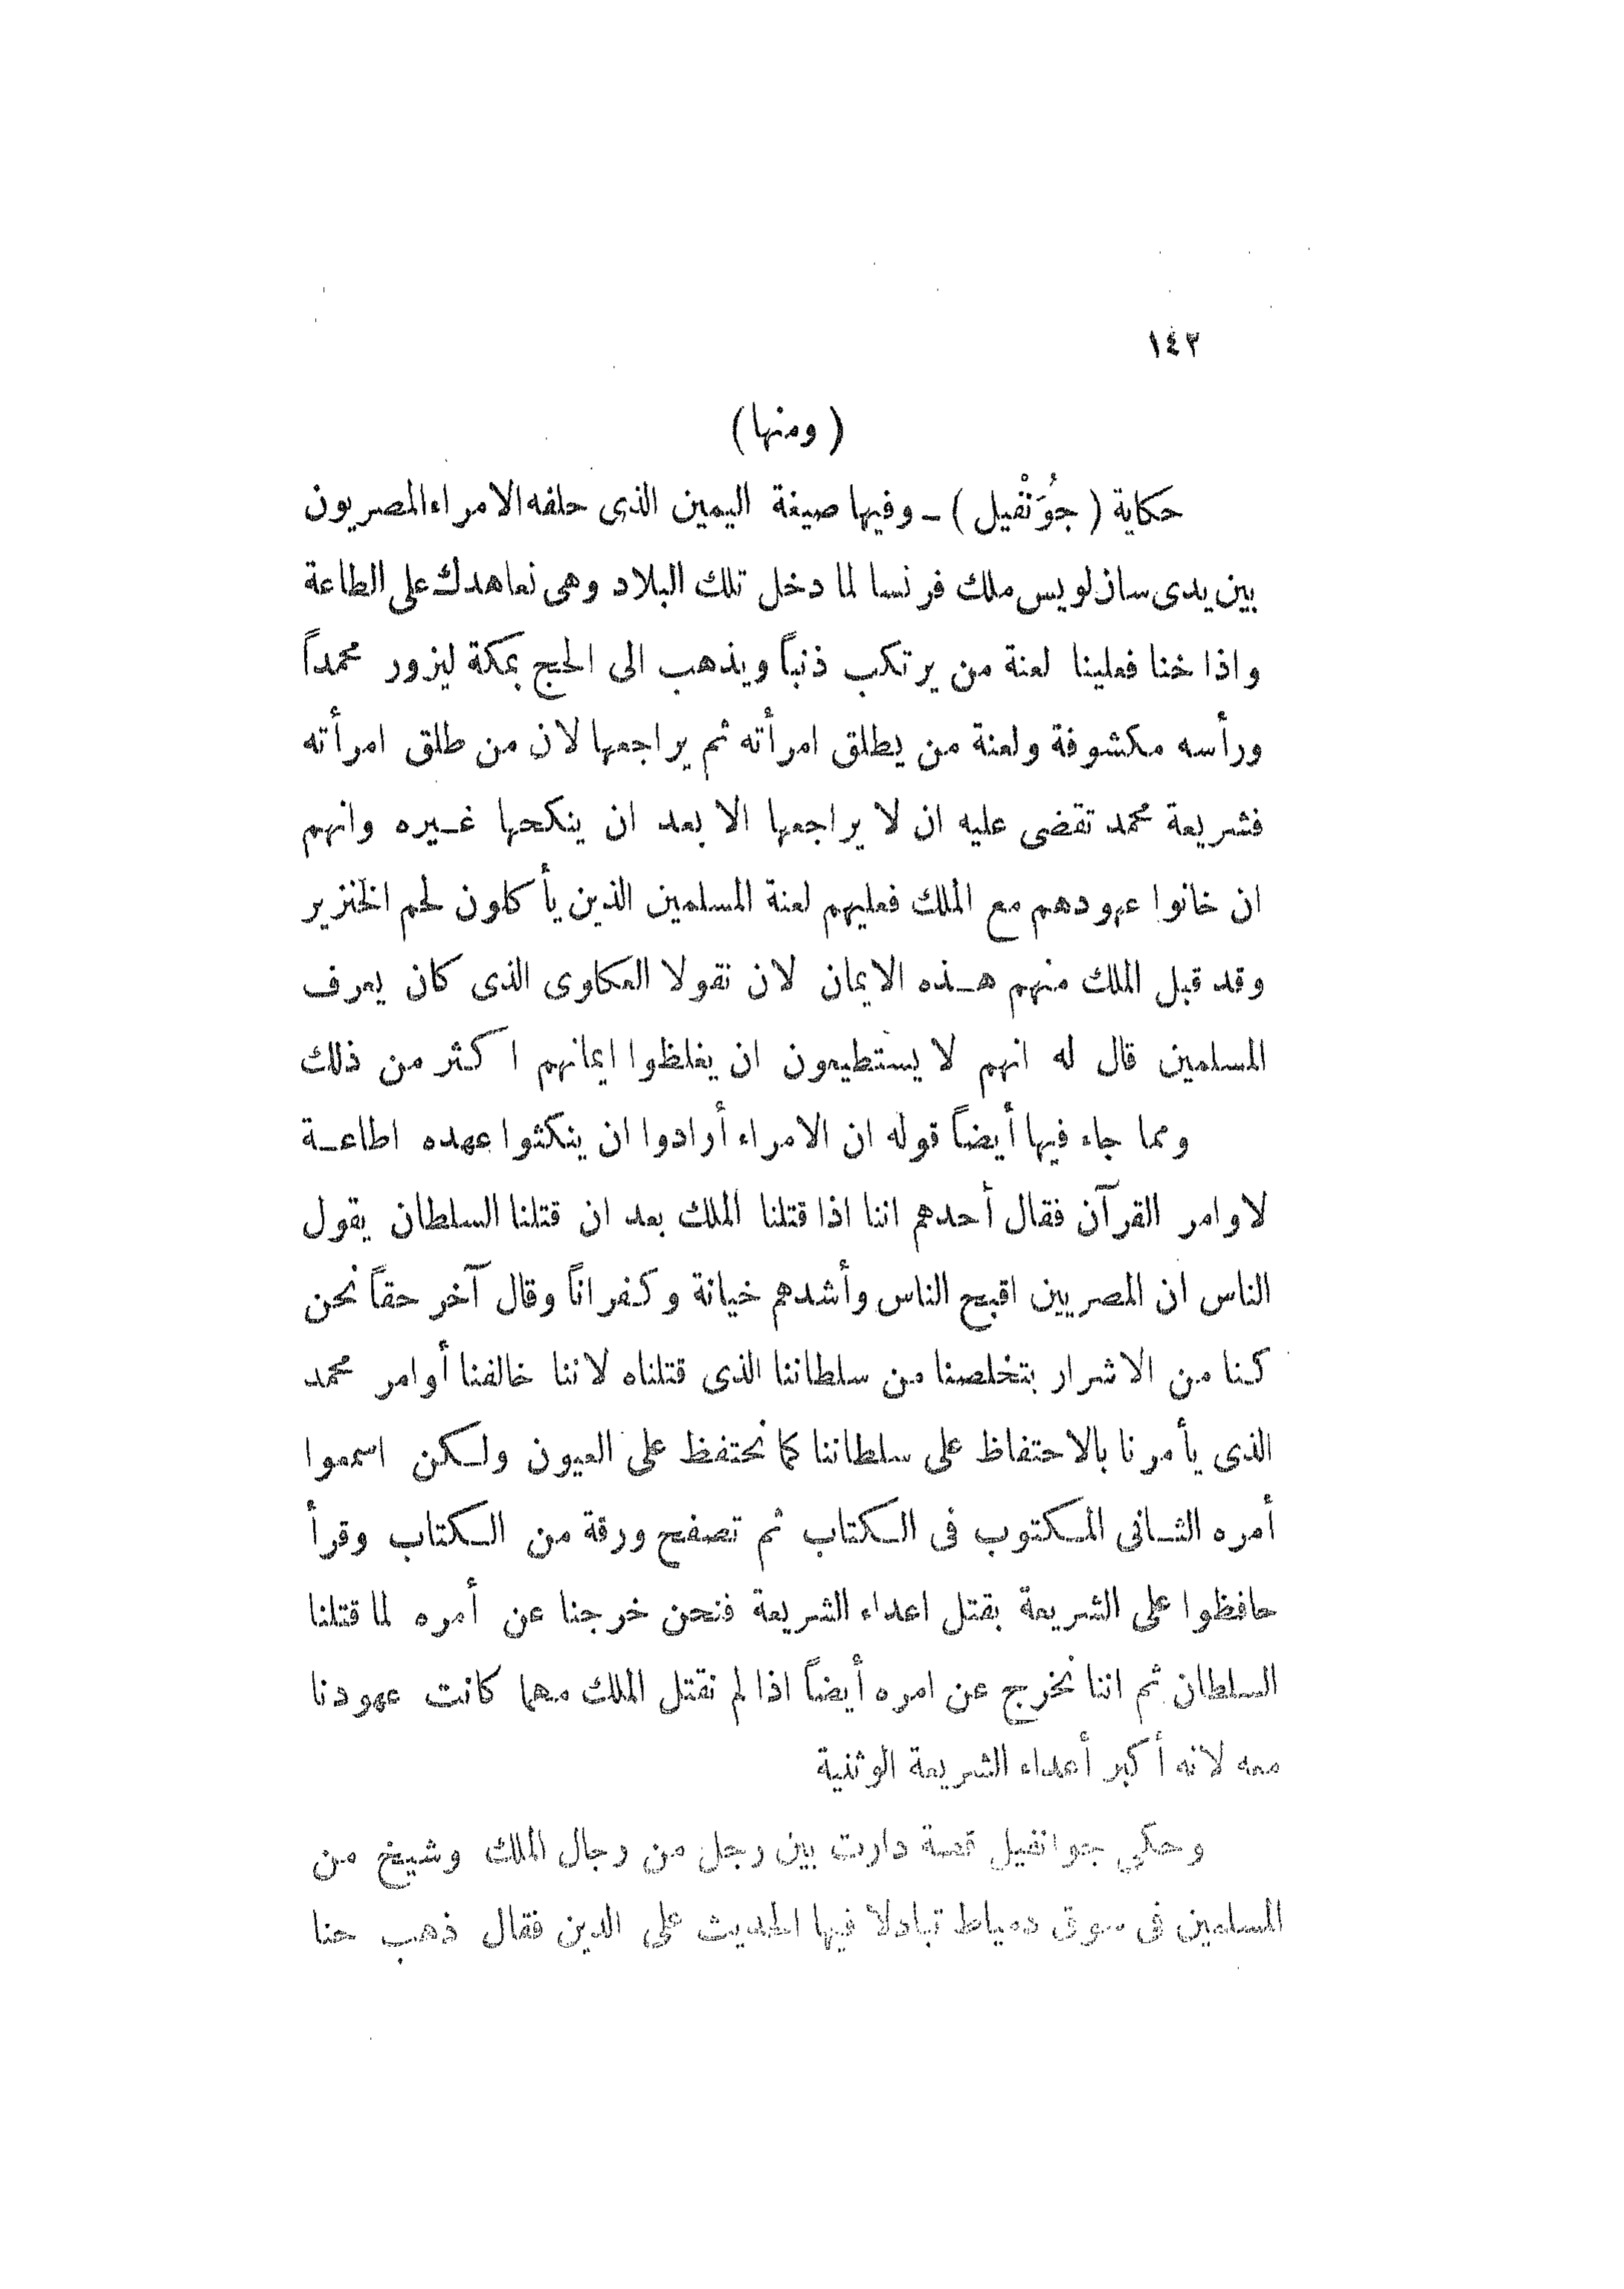 ١٤٢
( ومنها )
حكاية ( جُوَنْفيل ) ــ وفيها صيغة اليمين الذى حلفه الامراء المصريون
بين يدى سان لويس ملك فرنسا لما دخل تلك البلاد وهى نعاهدك على الطاعة
واذا خنا فعلينا لعنة من يرتكب ذنباً ويذهب الى الحج بمكة ليزور محمداً
ورأسه مكشوفة ولعنة من يطلق امرأته ثم يراجعها لان من طلق امرأته
فشريعة محمد تقضى عليه ان لا يراجعها الا بعد ان ينكحها غيره وانهم
ان خانوا عهودهم مع الملك فعليهم لعنة المسلمين الذين يأكلون لحم الخنزير
وقد قبل الملك منهم هذه الايمان لان نقولا العكاوى الذى كان يعرف
المسلمين قال له انهم لا يستطيعون ان يغلظوا ايمانهم اكثر من ذلك
ومما جاء فيها أيضاً قوله ان الامراء أرادوا ان ينكثوا عهده اطاعة
لاوامر القرآن فقال أحدهم اننا اذا قتلنا الملك بعد ان قتلنا السلطان يقول
الناس ان المصريين اقبح الناس وأشدهم خيانة وكفراناً وقال آخر حقاً نحن
كنا من الاشرار بتخلصنا من سلطاننا الذى قتلناه لاننا خالفنا أوامر محمد
الذى يأمرنا بالاحتفاظ على سلطاننا كما نحتفظ على العيون ولكن اسمعوا
أمره الثانى المكتوب فى الكتاب ثم تصفح ورقة من الكتاب وقرأ
حافظوا على الشريعة بقتل اعداء الشريعة فنحن خرجنا عن أمره لما قتلنا
السلطان ثم اننا نخرج عن امره أيضاً اذا لم نقتل الملك مهما كانت عهودنا
معه لانه أكبر أعداء الشريعة الوثنية
وحكى جوانفيل قصة دارت بين رجل من رجال الملك وشيخ من
المسلمين فى سوق دمياط تبادلا فيها الحديث على الدين فقال ذهب حنا